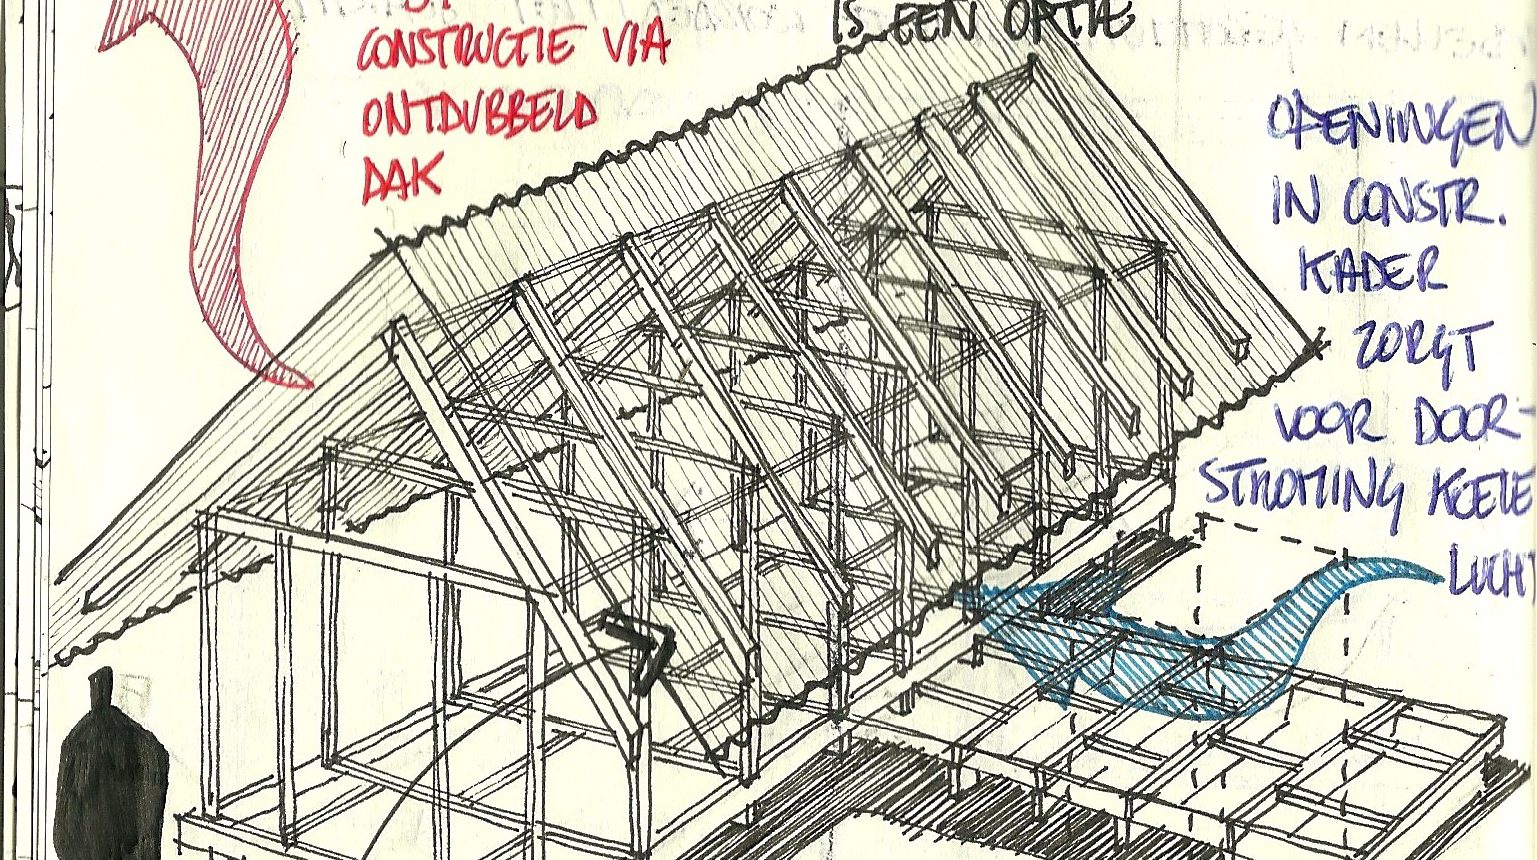 CONSTRUCTIE VIA
ONTDUBBELD
DAK
IS EEN OPTIE
OPENINGEN
IN CONSTR.
KADER
ZORGT
VOOR DOOR-
STROMING KOELE
LUCHT